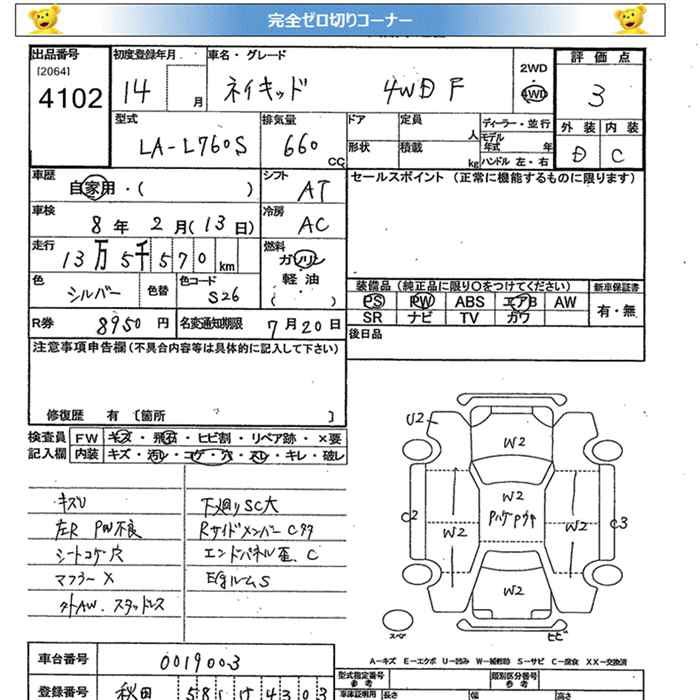 完全ゼロ切りコーナー
出品番号
[2064]
4102
初度登録年月
14 月
車名・グレード
ネイキッド 4WD F
2WD
4WD
評価点
3
外装 内装
D C
型式
LA-L760S
排気量
660 CC
ドア 定員 人
形状 積載 kg
ディーラー・並行
モデル年式 年
ハンドル 左・右
車歴
自家用・( )
シフト
AT
セールスポイント (正常に機能するものに限ります)
車検
8年 2月(13日)
冷房
AC
走行
13万5千570km
燃料
ガソリン
軽油
( ・ )
色
シルバー
色替
色コード
S26
装備品 (純正品に限り○をつけてください) 新車保証書
PS PW ABS エアB AW 有・無
SR ナビ TV カワ
R券 8950円
名変通知期限 7月20日
後日品
注意事項申告欄(不具合内容等は具体的に記入して下さい)
修復歴 有 〔箇所 〕
検査員記入欄
FW キズ・飛石・ヒビ割・リペア跡・×要
内装 キズ・汚レ・コゲ・穴・スレ・キレ・破レ
キズU
左R PW不良
シートコゲ穴
マフラーX
外AW.スタッドレス
下廻りSC大
RサイドメンバーCクサ
エンドパネル歪、C
EgルームS
U2
W2
W2
C2
W2
W2
C3
W2
スペア
ヒビ
A-キズ E-エクボ U-凹み W-補修跡 S-サビ C-腐食 XX-交換済
車台番号
0019003
登録番号
秋田 581 す 4303
型式指定番号
参考
類別区分番号
参考
車体証明用
長さ
幅
高さ